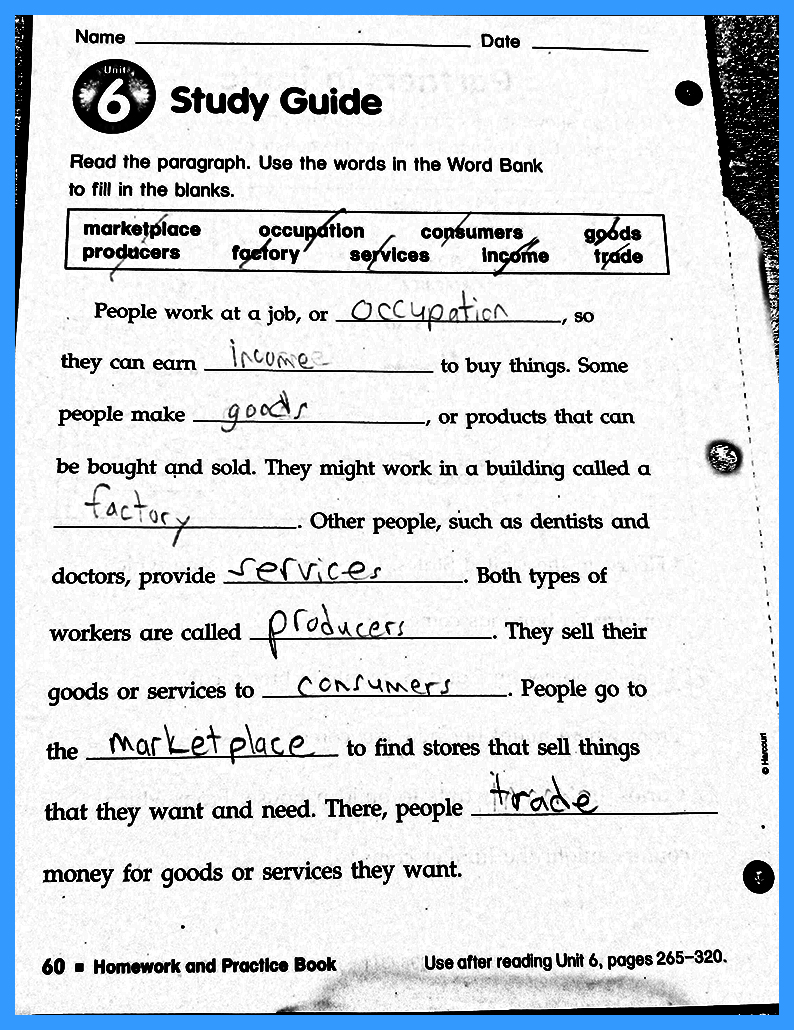 Name Date
Unit
6 Study Guide
Read the paragraph. Use the words in the Word Bank
to fill in the blanks.
marketplace occupation consumers goods
producers factory services income trade
People work at a job, or occupation, so
they can earn income to buy things. Some
people make goods, or products that can
be bought and sold. They might work in a building called a
factory. Other people, such as dentists and
doctors, provide services. Both types of
workers are called producers. They sell their
goods or services to consumers. People go to
the marketplace to find stores that sell things
that they want and need. There, people trade
money for goods or services they want.
© Harcourt
60 ■ Homework and Practice Book Use after reading Unit 6, pages 265–320.